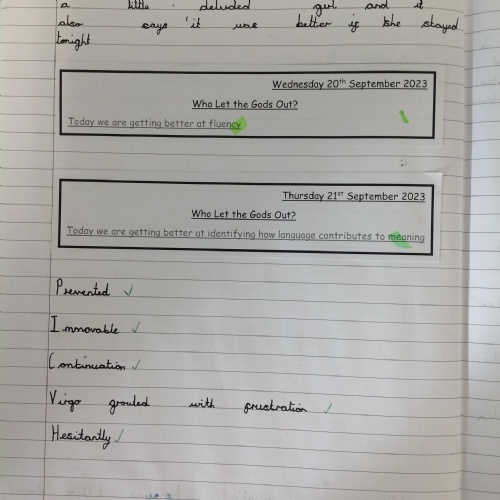 a little deluded girl and it
also says 'it was better if she stayed
tonight
Wednesday 20th September 2023
Who Let the Gods Out?
Today we are getting better at fluency
Thursday 21st September 2023
Who Let the Gods Out?
Today we are getting better at identifying how language contributes to meaning
Prevented
Immovable
Continuation
Virgo grouled with frustration
Hesitantly